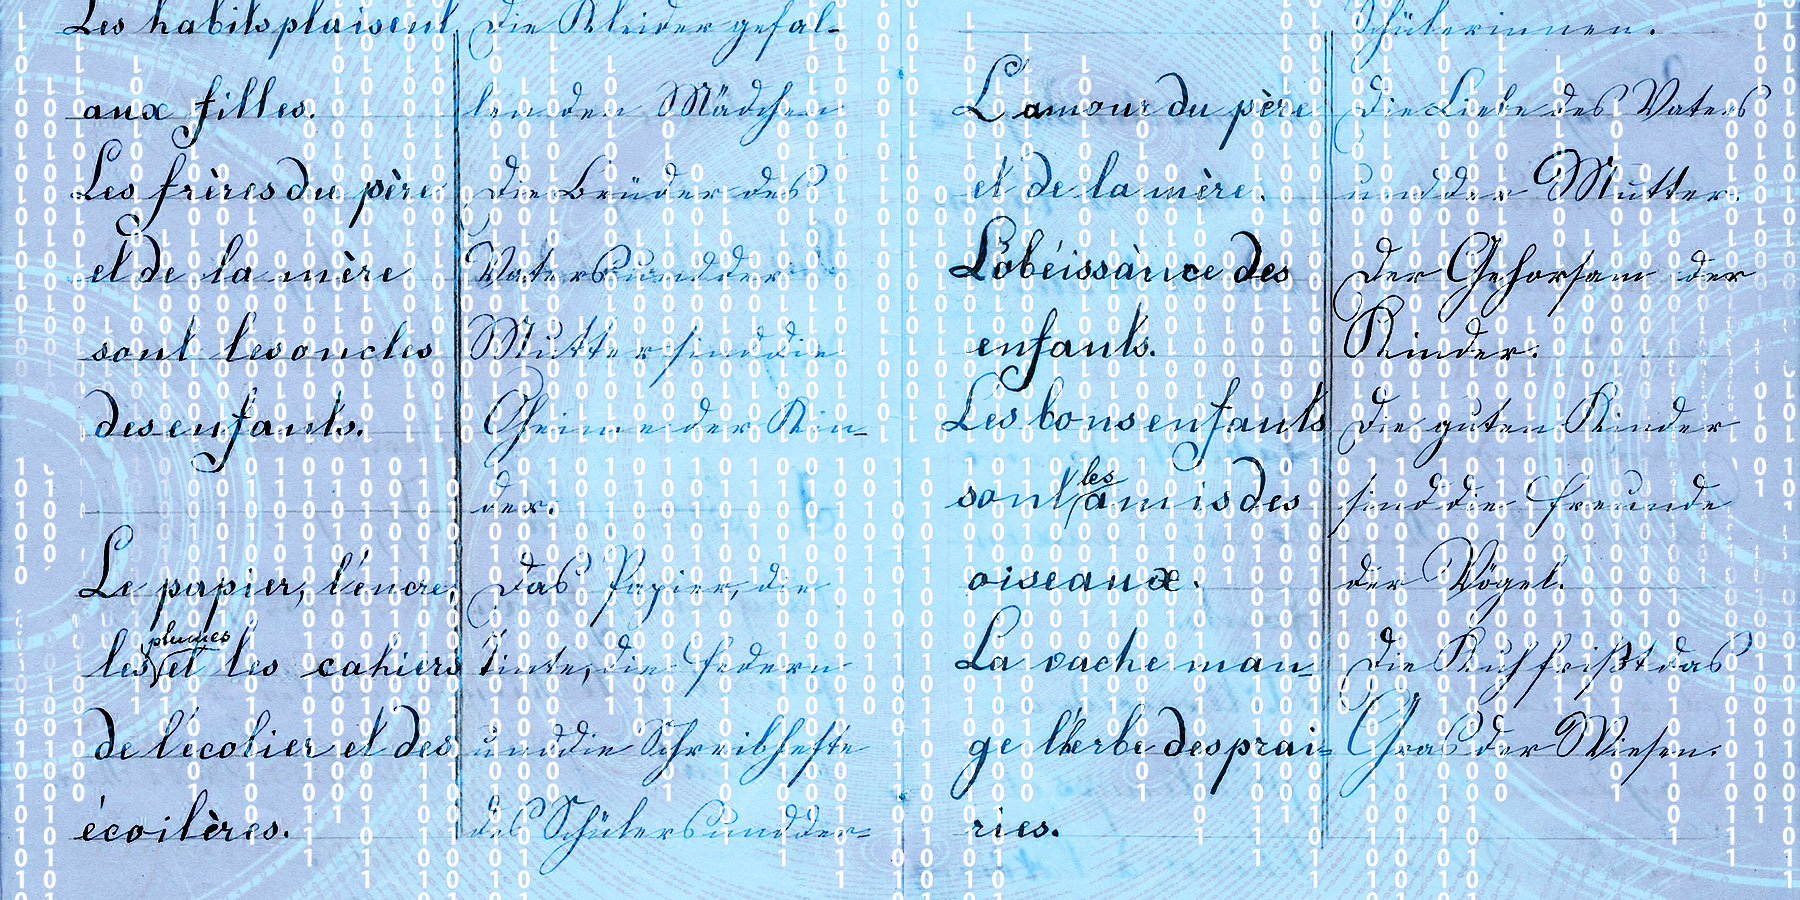 Les habits plaisent
aux filles.
Les frères du père
et de la mère
sont les oncles
des enfants.
Le papier, l'encre,
plumes
les et les cahiers
de l'écolier et des
écoilères.
Die Kleider gefal-
len den Mädchen
Die Brüder des
Vaters und der
Mutter sind die
Oheime der Kin-
der.
Das Papier, die
Tinte, die Federn
und die Schreibhefte
des Schülers und der
L'amour du père
et de la mère.
L'obéissance des
enfants.
Les bons enfants
les
sont amis des
oiseaux.
La vache man-
ge l'herbe des prai-
ries.
Schülerinnen.
Die Liebe des Vaters
und der Mutter.
Der Gehorsam der
Kinder.
Die guten Kinder
sind die Freunde
der Vögel.
Die Kuh frißt das
Gras der Wiesen.